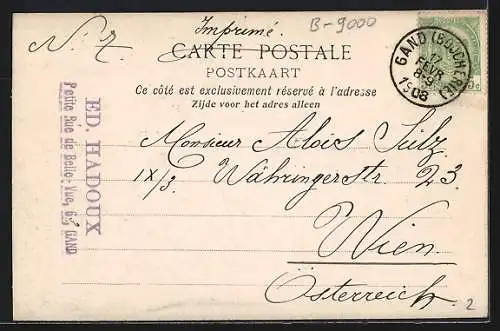 Imprimé.
B-9000
N: 7.
CARTE POSTALE
POSTKAART
Ce côté est exclusivement réservé à l'adresse
Zijde voor het adres alleen
GAND (BOUCHERIE)
17
FEVR
8-9
1908
5c
ED. HADOUX
Petite Rue de Belle-Vue, 62 GAND
Monsieur Alois Sulz
IX/3. Währingerstr. 23.
Wien
Österreich.
2